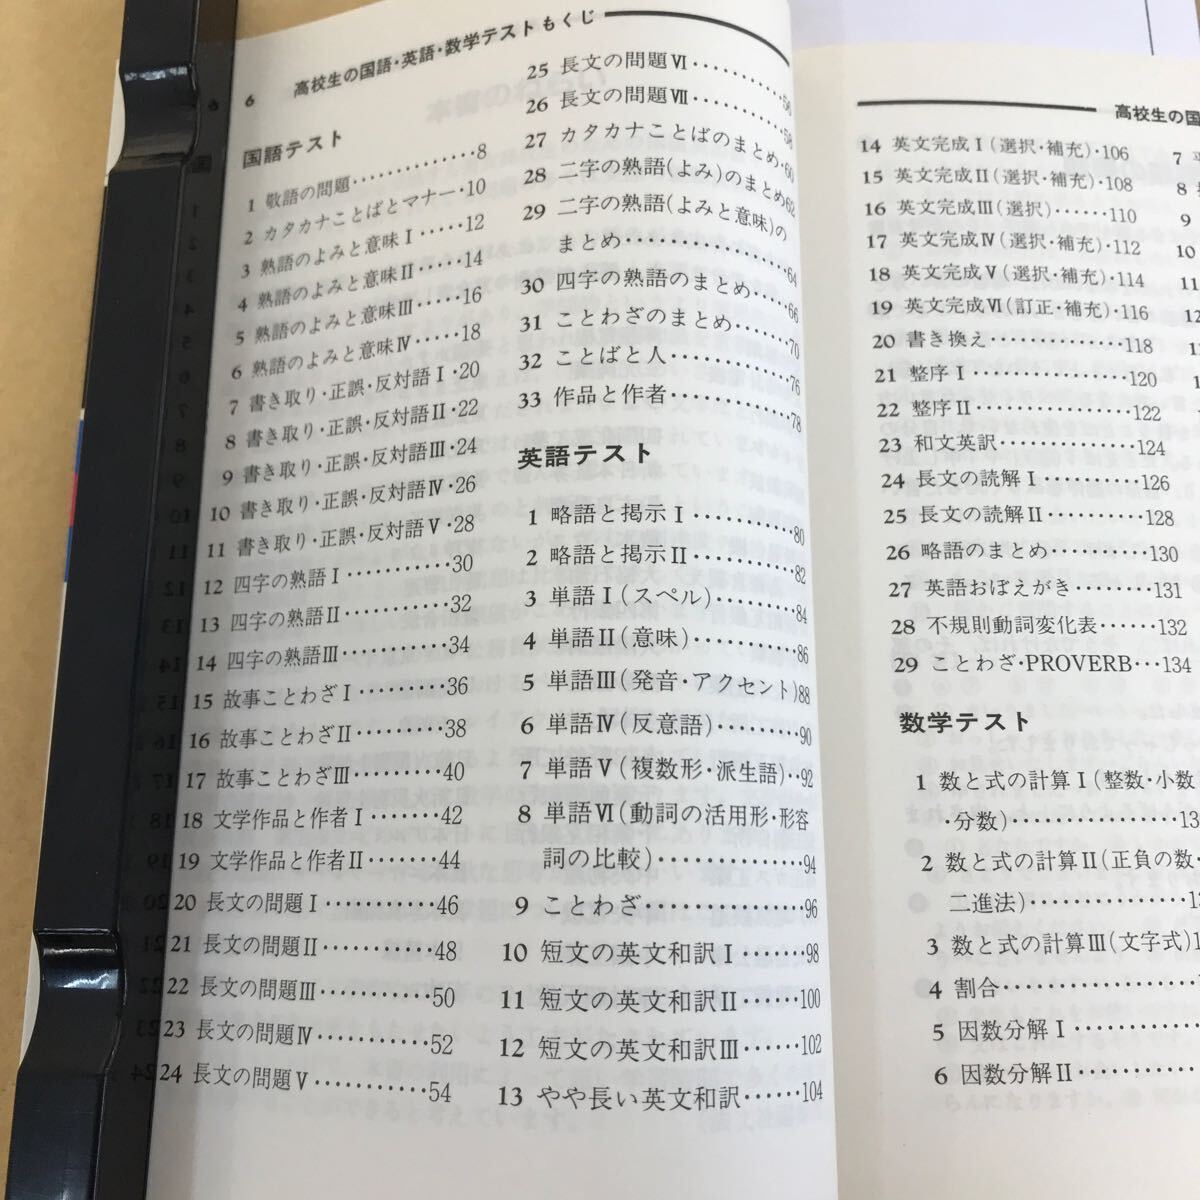 6 高校生の国語・英語・数学テストもくじ
国語テスト
1 敬語の問題…………8
2 カタカナことばとマナー・10
3 熟語のよみと意味Ⅰ……12
4 熟語のよみと意味Ⅱ……14
5 熟語のよみと意味Ⅲ……16
6 熟語のよみと意味Ⅳ……18
7 書き取り・正誤・反対語Ⅰ・20
8 書き取り・正誤・反対語Ⅱ・22
9 書き取り・正誤・反対語Ⅲ・24
10 書き取り・正誤・反対語Ⅳ・26
11 書き取り・正誤・反対語Ⅴ・28
12 四字の熟語Ⅰ…………30
13 四字の熟語Ⅱ…………32
14 四字の熟語Ⅲ…………34
15 故事ことわざⅠ………36
16 故事ことわざⅡ………38
17 故事ことわざⅢ………40
18 文学作品と作者Ⅰ……42
19 文学作品と作者Ⅱ……44
20 長文の問題Ⅰ…………46
21 長文の問題Ⅱ…………48
22 長文の問題Ⅲ…………50
23 長文の問題Ⅳ…………52
24 長文の問題Ⅴ…………54
25 長文の問題Ⅵ…………56
26 長文の問題Ⅶ…………58
27 カタカナことばのまとめ・60
28 二字の熟語(よみ)のまとめ62
29 二字の熟語(よみと意味)の
まとめ……………64
30 四字の熟語のまとめ……66
31 ことわざのまとめ………70
32 ことばと人……………76
33 作品と作者……………78
英語テスト
1 略語と掲示Ⅰ…………80
2 略語と掲示Ⅱ…………82
3 単語Ⅰ(スペル)………84
4 単語Ⅱ(意味)…………86
5 単語Ⅲ(発音・アクセント)88
6 単語Ⅳ(反意語)………90
7 単語Ⅴ(複数形・派生語)‥92
8 単語Ⅵ(動詞の活用形・形容
詞の比較)……………94
9 ことわざ………………96
10 短文の英文和訳Ⅰ……98
11 短文の英文和訳Ⅱ……100
12 短文の英文和訳Ⅲ……102
13 やや長い英文和訳……104
高校生の国
14 英文完成Ⅰ(選択・補充)・106
15 英文完成Ⅱ(選択・補充)・108
16 英文完成Ⅲ(選択)……110
17 英文完成Ⅳ(選択・補充)・112
18 英文完成Ⅴ(選択・補充)・114
19 英文完成Ⅵ(訂正・補充)・116
20 書き換え……………118
21 整序Ⅰ………………120
22 整序Ⅱ………………122
23 和文英訳……………124
24 長文の読解Ⅰ………126
25 長文の読解Ⅱ………128
26 略語のまとめ………130
27 英語おぼえがき………131
28 不規則動詞変化表……132
29 ことわざ・PROVERB…134
数学テスト
1 数と式の計算Ⅰ(整数・小数
・分数)………………136
2 数と式の計算Ⅱ(正負の数・
二進法)………………13
3 数と式の計算Ⅲ(文字式)1
4 割合…………………1
5 因数分解Ⅰ……………
6 因数分解Ⅱ……………
7
8
9
10
11
12